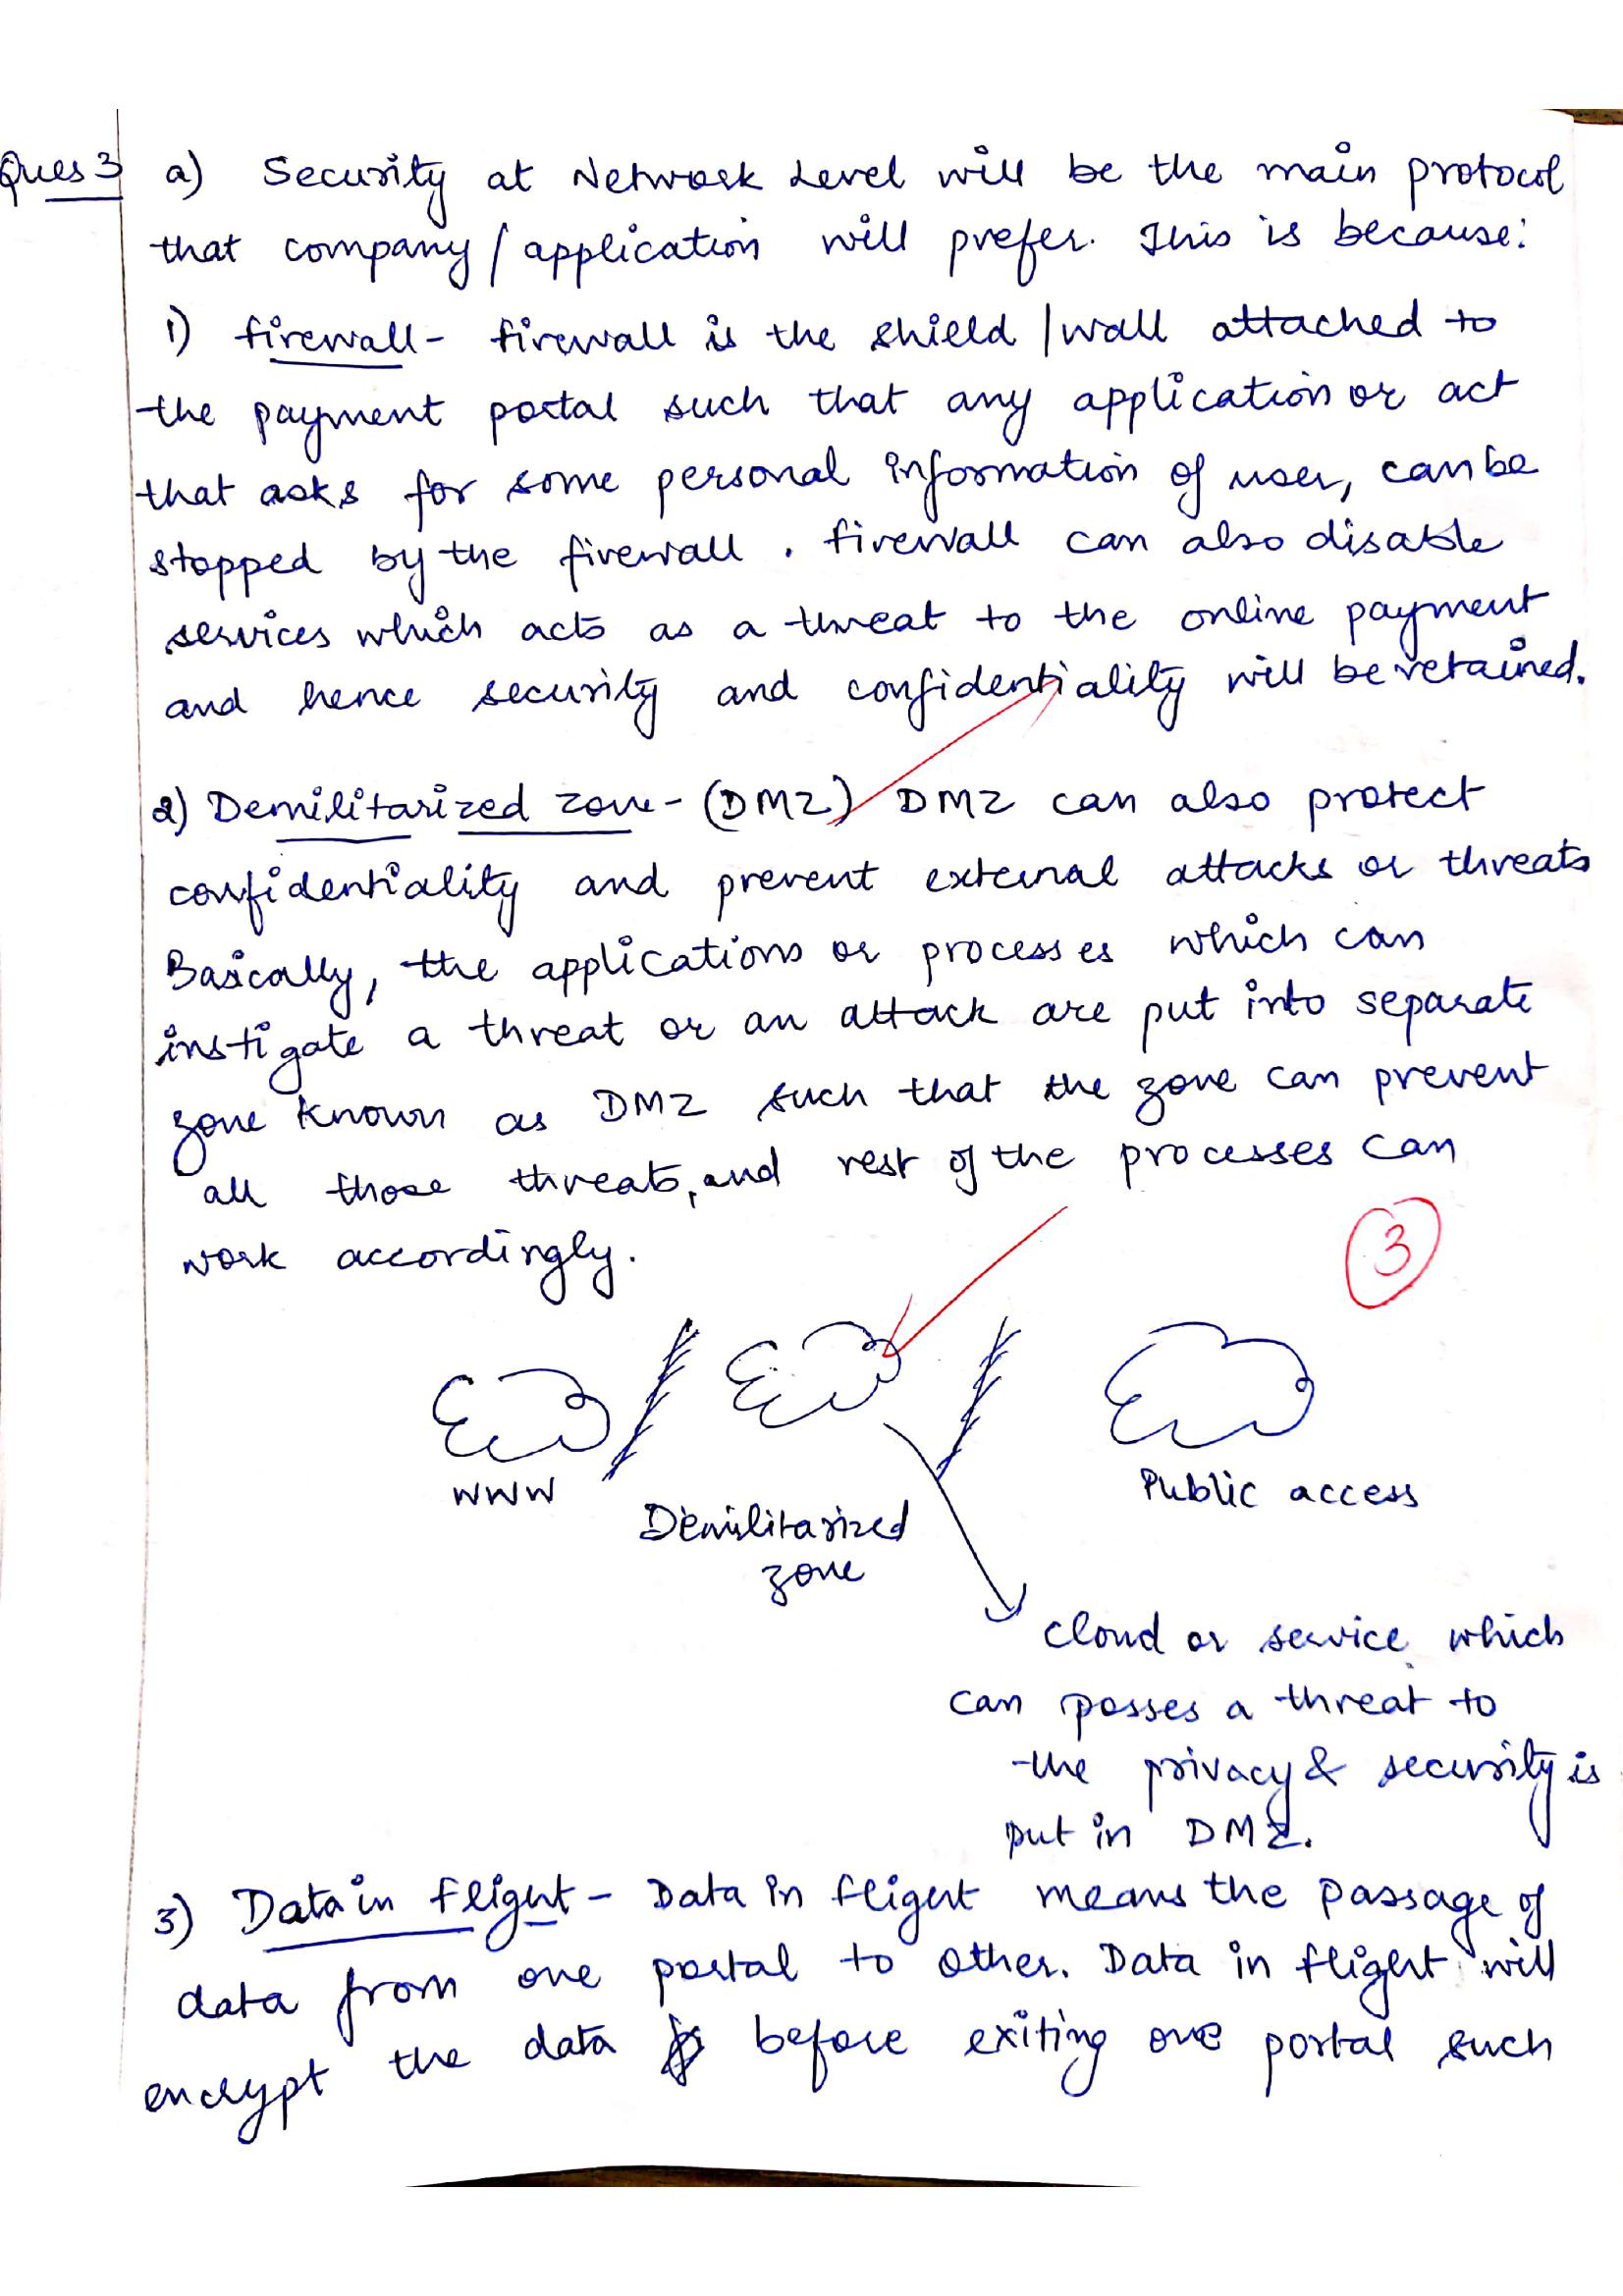 Ques 3 a) Security at Network Level will be the main protocol
that company/application will prefer. This is because:
1) firewall - firewall is the shield/wall attached to
the payment portal such that any application or act
that asks for some personal information of user, can be
stopped by the firewall. firewall can also disable
services which acts as a threat to the online payment
and hence security and confidentiality will be retained.
2) Demilitarized zone - (DMZ) DMZ can also protect
confidentiality and prevent external attacks or threats
Basically, the applications or processes which can
instigate a threat or an attack are put into separate
zone known as DMZ such that the zone can prevent
all those threats, and rest of the processes can
work accordingly.
3
WWW
Demilitarized
zone
Public access
cloud or service which
can posses a threat to
the privacy & security is
put in DMZ.
3) Data in flight - Data in flight means the passage of
data from one portal to other. Data in flight will
encrypt the data before exiting one portal such